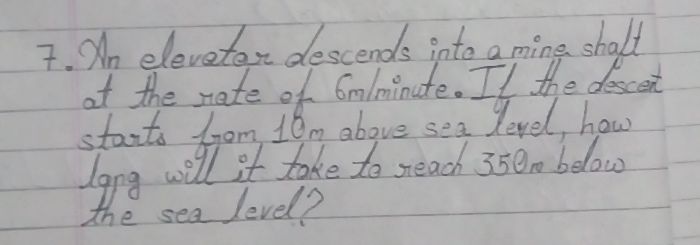 7. An elevator descends into a mine shaft
at the rate of 6m/minute. If the descent
starts from 10m above sea level, how
long will it take to reach 350m below
the sea level?